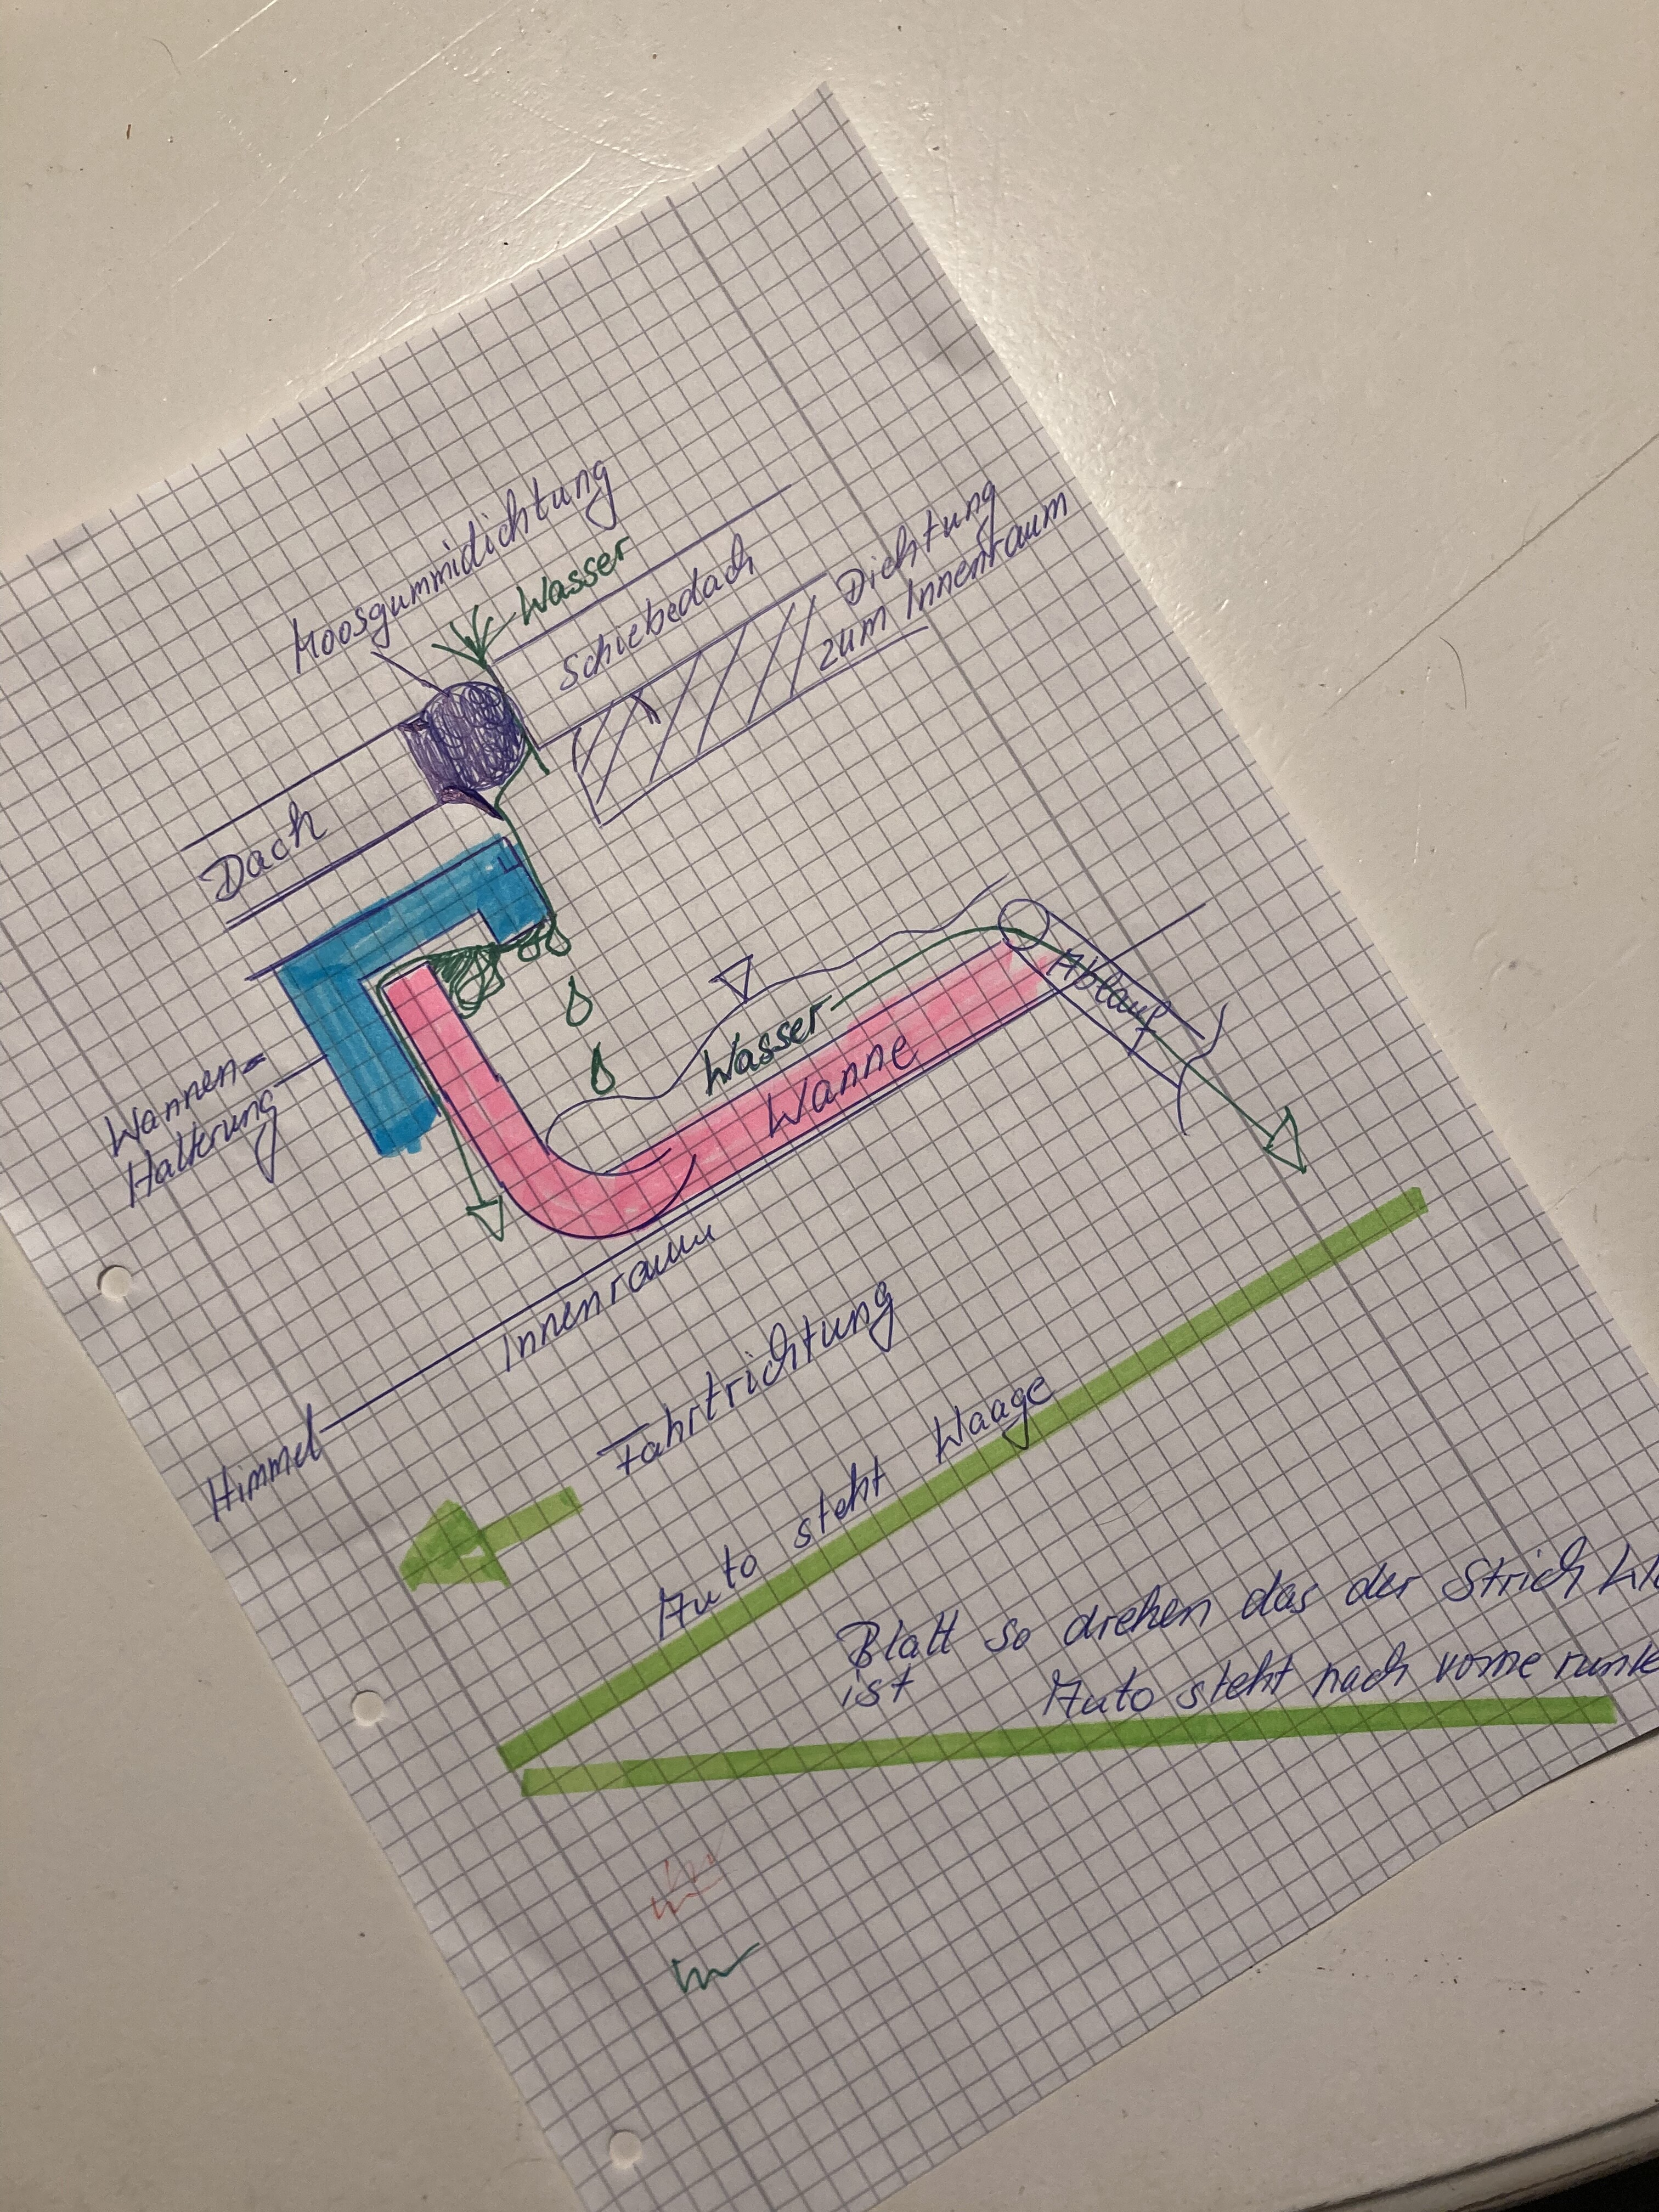 Moosgummidichtung
Wasser
Schiebedach
Dichtung
zum Innenraum
Dach
Wannen=
Halterung
Wasser
Wanne
Ablauf
Innenraum
Himmel
Fahrtrichtung
Auto steht Waage
Blatt so drehen das der Strich
ist
Auto steht nach vorne